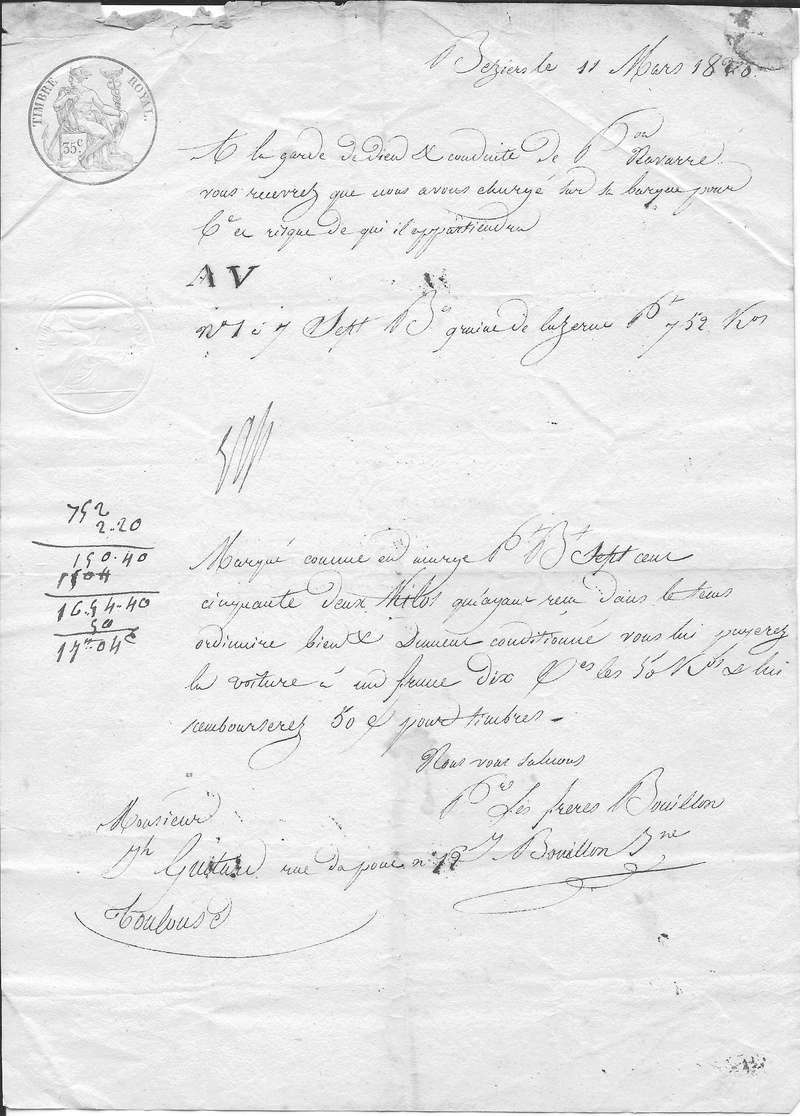 TIMBRE ROYAL.
35c.
Beziers le 11 Mars 18
A la garde de dieu & conduite de Pon Navarre
vous recevrez que nous avons chargé sur sa barque pour
Cte et risque de qui il appartiendra
AV
No 1 à 7 Sept Bes graine de luzerne Pt 752 Kos
Marqué comme en marge Pt Bt Sept cent
cinquante deux Kilos qu'ayant reçu dans le tems
ordinaire bien & Dument conditionné vous lui payerez
la voiture à un franc dix ces les 50 Kos & lui
rembourserez 50 c pour timbres -
752
2.20
150.40
1504
1654.40
50
17.04c
Nous vous saluons
Pr Les freres Bouillon
J Bouillon Jne
Monsieur
Jh Guitard rue du pont no 12
Toulouse